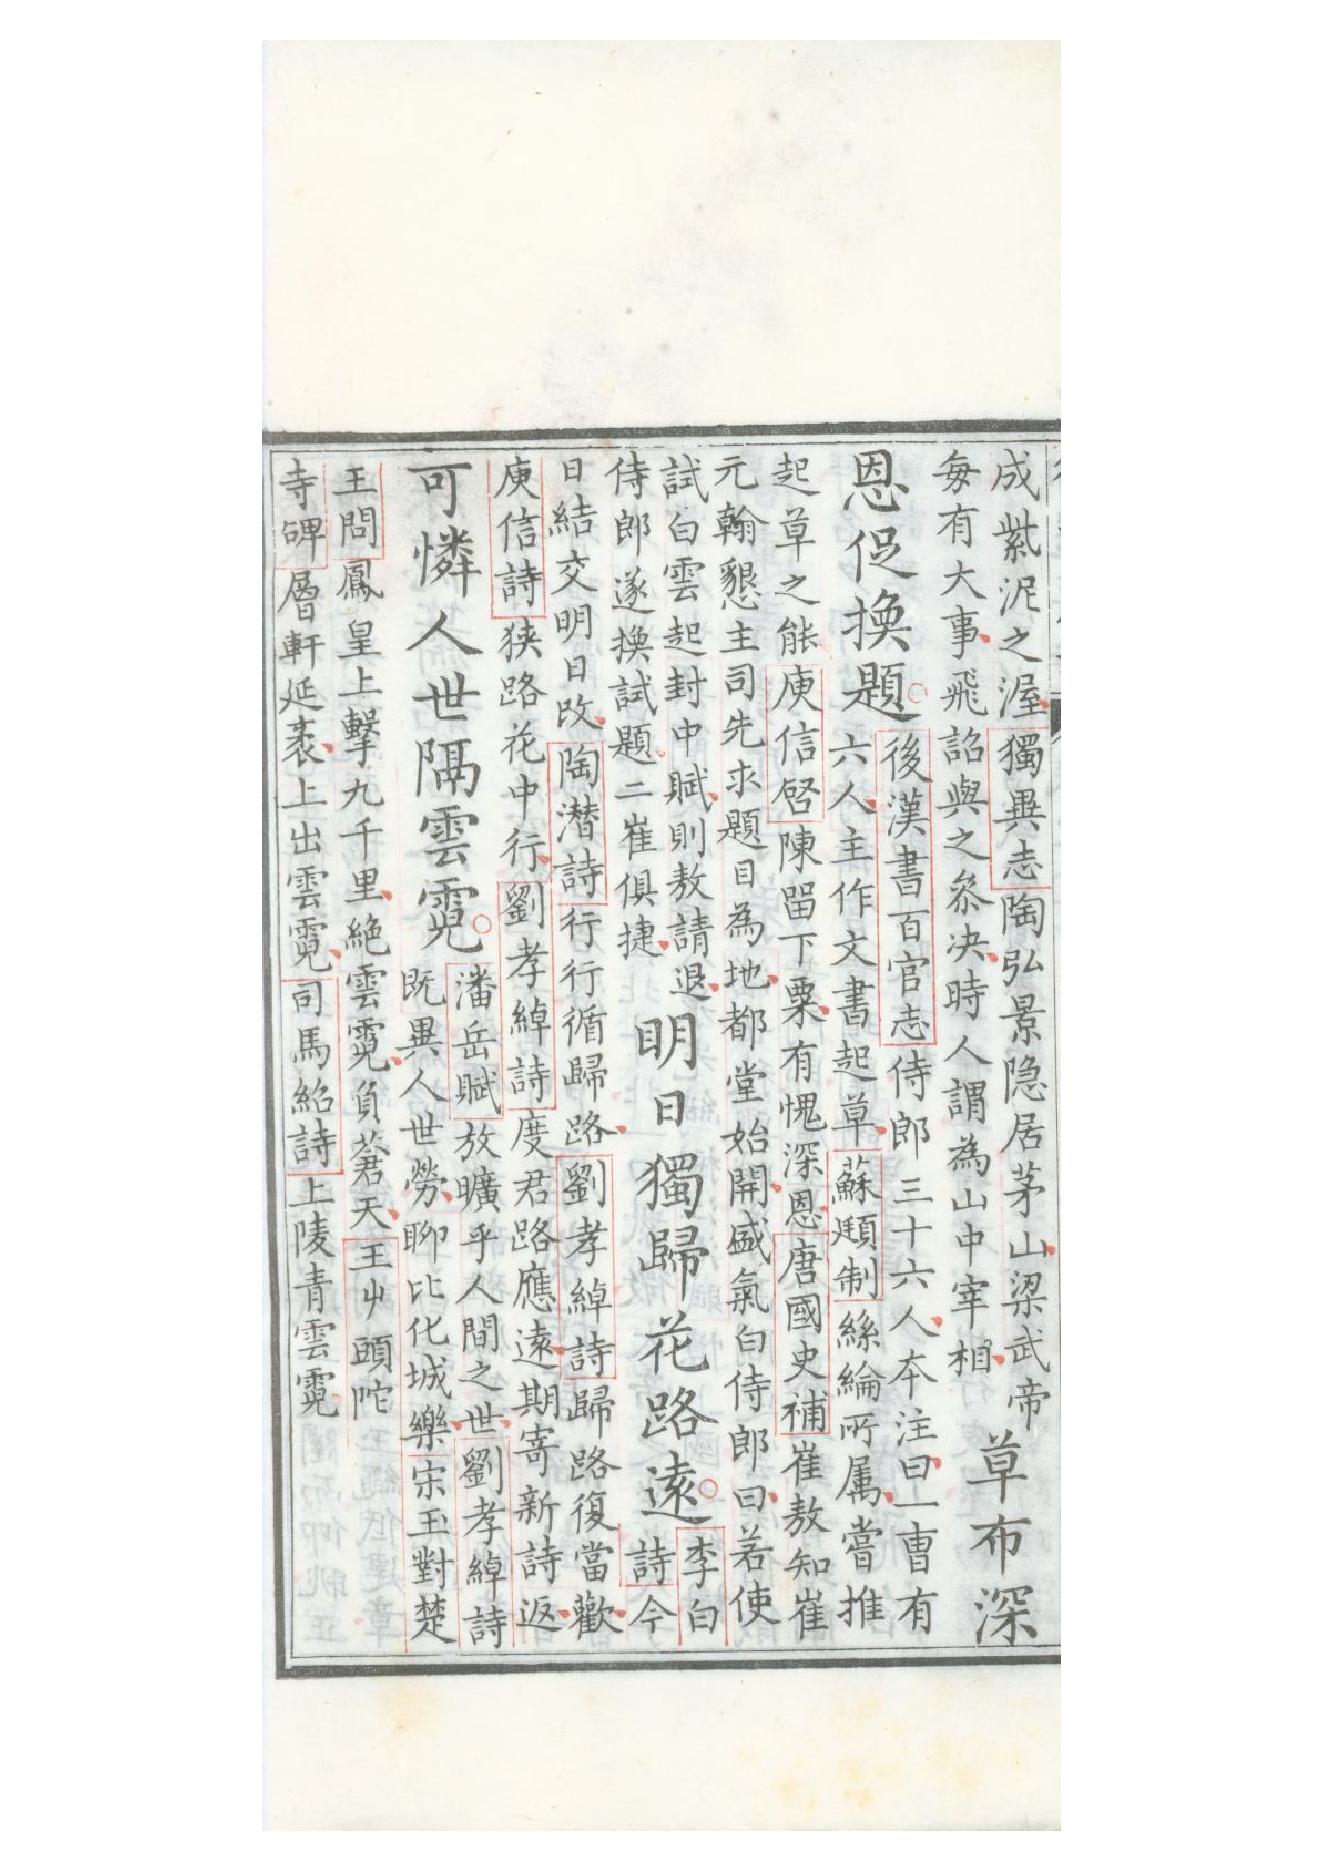 成紫泥之渥獨異志陶弘景隐居茅山梁武帝
每有大事飛詔與之叅决時人謂為山中宰相
草布深
恩促換題
後漢書百官志侍郎三十六人本注曰一曹有
六人主作文書起草蘇頲制絲綸所属嘗推
起草之能庾信啓陳留下粟有愧深恩唐國史補崔敖知崔
元翰懇主司先求題目為地都堂始開盛氣白侍郎曰若使
試白雲起封中賦則敖請退
侍郎遂換試題二崔俱捷
明日獨歸花路遠
李白
詩今
日結交明日改陶潜詩行行循歸路劉孝綽詩歸路復當歡
庾信詩狭路花中行劉孝綽詩度君路應遠期寄新詩返
可憐人世隔雲霓
潘岳賦放曠乎人間之世劉孝綽詩
既異人世勞聊比化城樂宋玉對楚
王問鳳皇上擊九千里絶雲霓負蒼天王屮頭陀
寺碑層軒延袤上出雲霓司馬紹詩上陵青雲霓